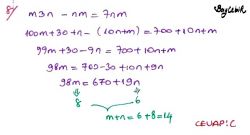 8) m3n - nm = 7nm
BayÇETİN
100m+30+n - (10n+m) = 700+10n+m
99m+30-9n = 700+10n+m
98m = 700-30+10n+9n
98m = 670+19n
8 6
m+n = 6+8 = 14
CEVAP: C